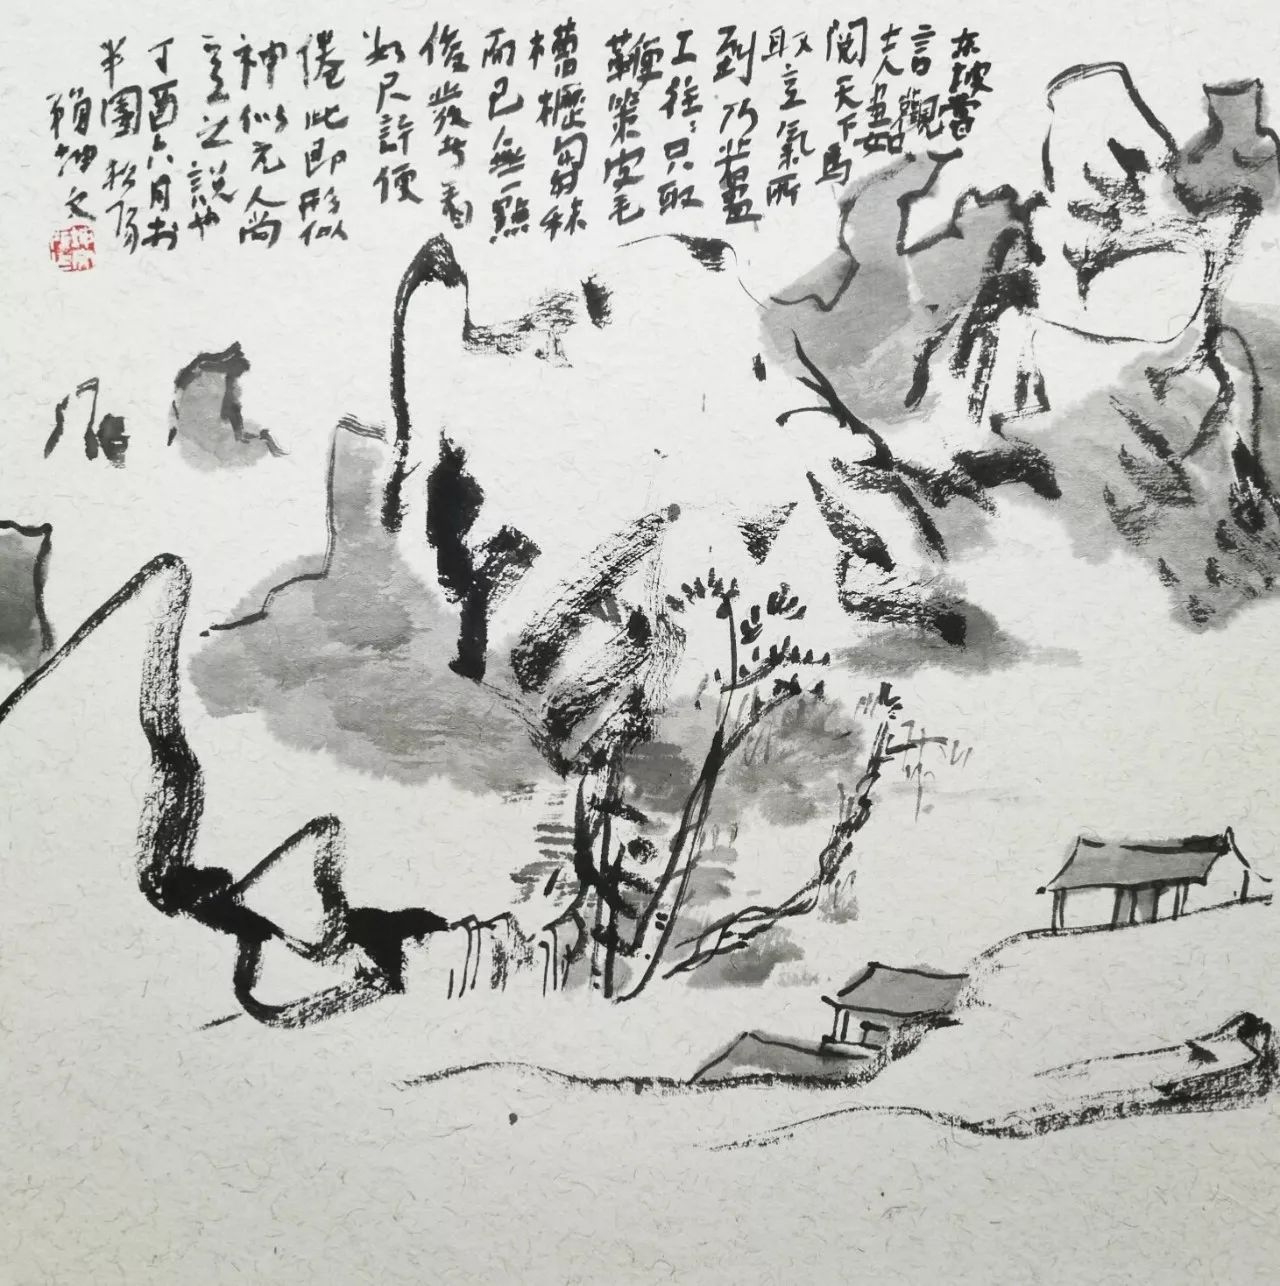 東坡嘗
言觀
士人畫如
閱天下馬
取意氣所
到乃若畫
工往々只取
鞭策皮毛
槽櫪芻秣
而已無一點
俊發看
數尺許便
倦此即形似
神似元人尚
意之說也
丁酉六月於
半園松
賴坤文